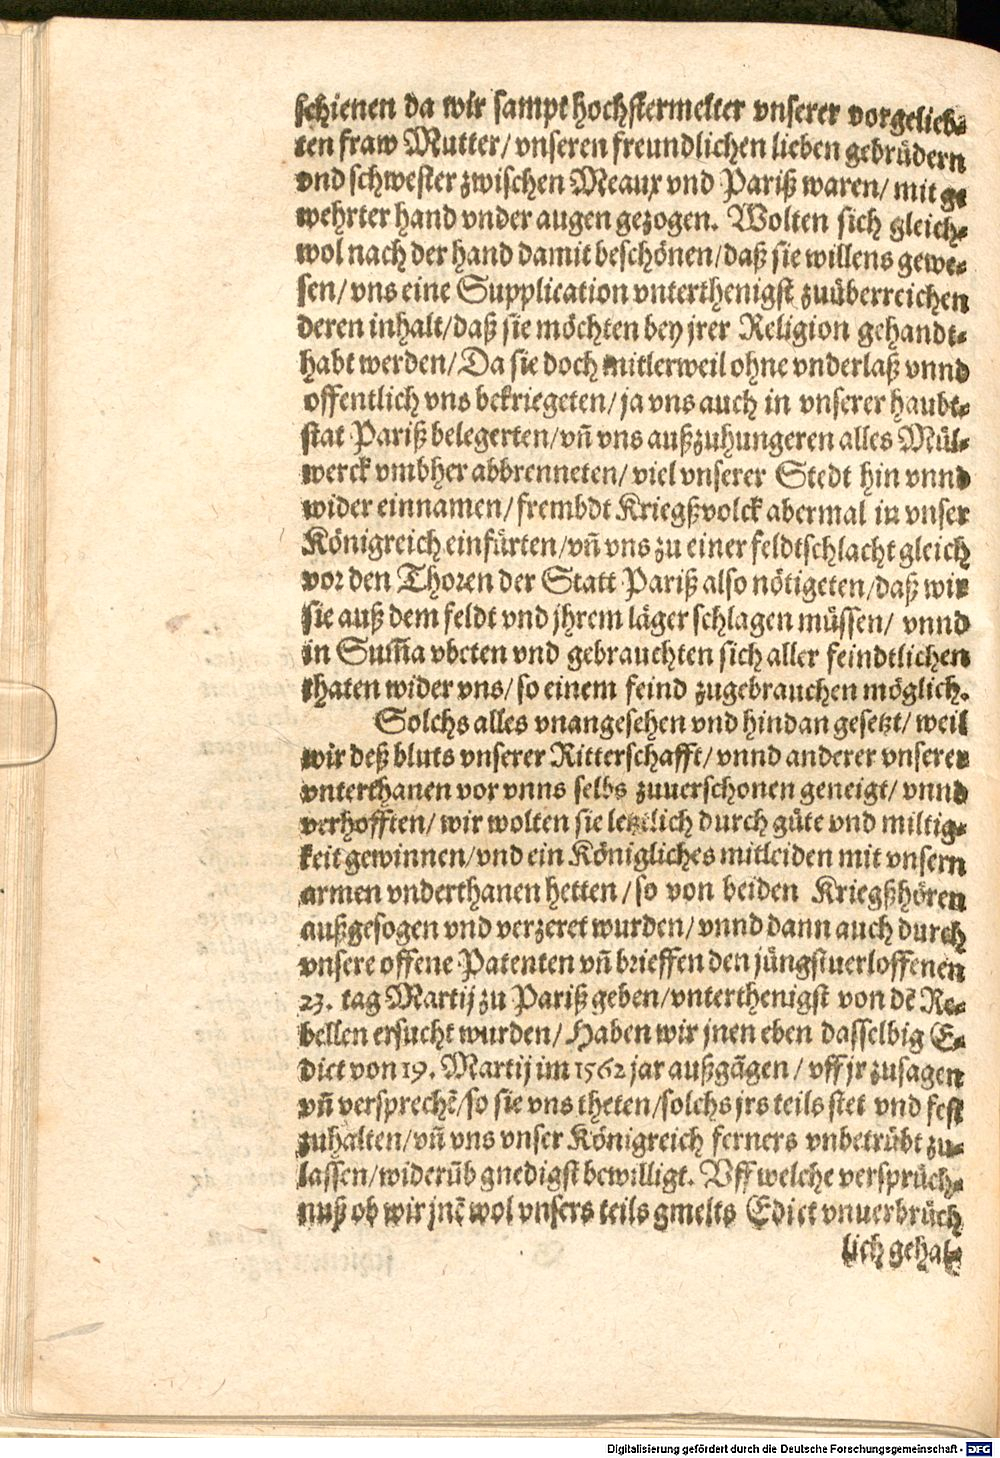 schienen da wir sampt hochstermelter vnserer vorgelieb⸗
ten fraw Mutter/ vnseren freundlichen lieben gebrüdern
vnd schwester zwischen Meaux vnd Pariß waren/ mit ge
wehrter hand vnder augen gezogen. Wolten sich gleich⸗
wol nach der hand damit beschönen/ daß sie willens gewe⸗
sen/ vns eine Supplication vnterthenigst zuüberreichen
deren inhalt/ daß sie möchten bey jrer Religion gehandt⸗
habt werden/ Da sie doch mitlerweil ohne vnderlaß vnnd
offentlich vns bekriegeten/ ja vns auch in vnserer haubt⸗
stat Pariß belegerten/ vñ vns außzuhungeren alles Mül⸗
werck vmbher abbrenneten/ viel vnserer Stedt hin vnnd
wider einnamen/ frembdt Kriegßvolck abermal in vnser
Königreich einfürten/ vñ vns zu einer feldtschlacht gleich
vor den Thoren der Statt Pariß also nötigeten/ daß wir
sie auß dem feldt vnd jhrem läger schlagen müssen/ vnnd
in Sum̃a vbeten vnd gebrauchten sich aller feindtlichen
thaten wider vns/ so einem feind zugebrauchen möglich.
Solchs alles vnangesehen vnd hindan gesetzt/ weil
wir deß bluts vnserer Ritterschafft/ vnnd anderer vnserer
vnterthanen vor vnns selbs zuuerschonen geneigt/ vnnd
verhofften/ wir wolten sie letztlich durch güte vnd miltig⸗
keit gewinnen/ vnd ein Königliches mitleiden mit vnsern
armen vnderthanen hetten/ so von beiden Kriegßhören
außgesogen vnd verzeret wurden/ vnnd dann auch durch
vnsere offene Patenten vñ brieffen den jüngstuerloffenen
23. tag Martij zu Pariß geben/ vnterthenigst von dẽ Re⸗
bellen ersucht wurden/ Haben wir jnen eben dasselbig E⸗
dict von 19. Martij im 1562 jar außgãgen/ vff jr zusagen
vñ versprechẽ/ so sie vns theten/ solchs jrs teils stet vnd fest
zuhalten/ vñ vns vnser Königreich ferners vnbetrübt zu⸗
lassen/ widerũb gnedigst bewilligt. Vff welche versprüch⸗
nuß ob wir jnẽ wol vnsers teils gmelts Edict vnuerbrüch
lich gehal⸗
Digitalisierung gefördert durch die Deutsche Forschungsgemeinschaft - DFG